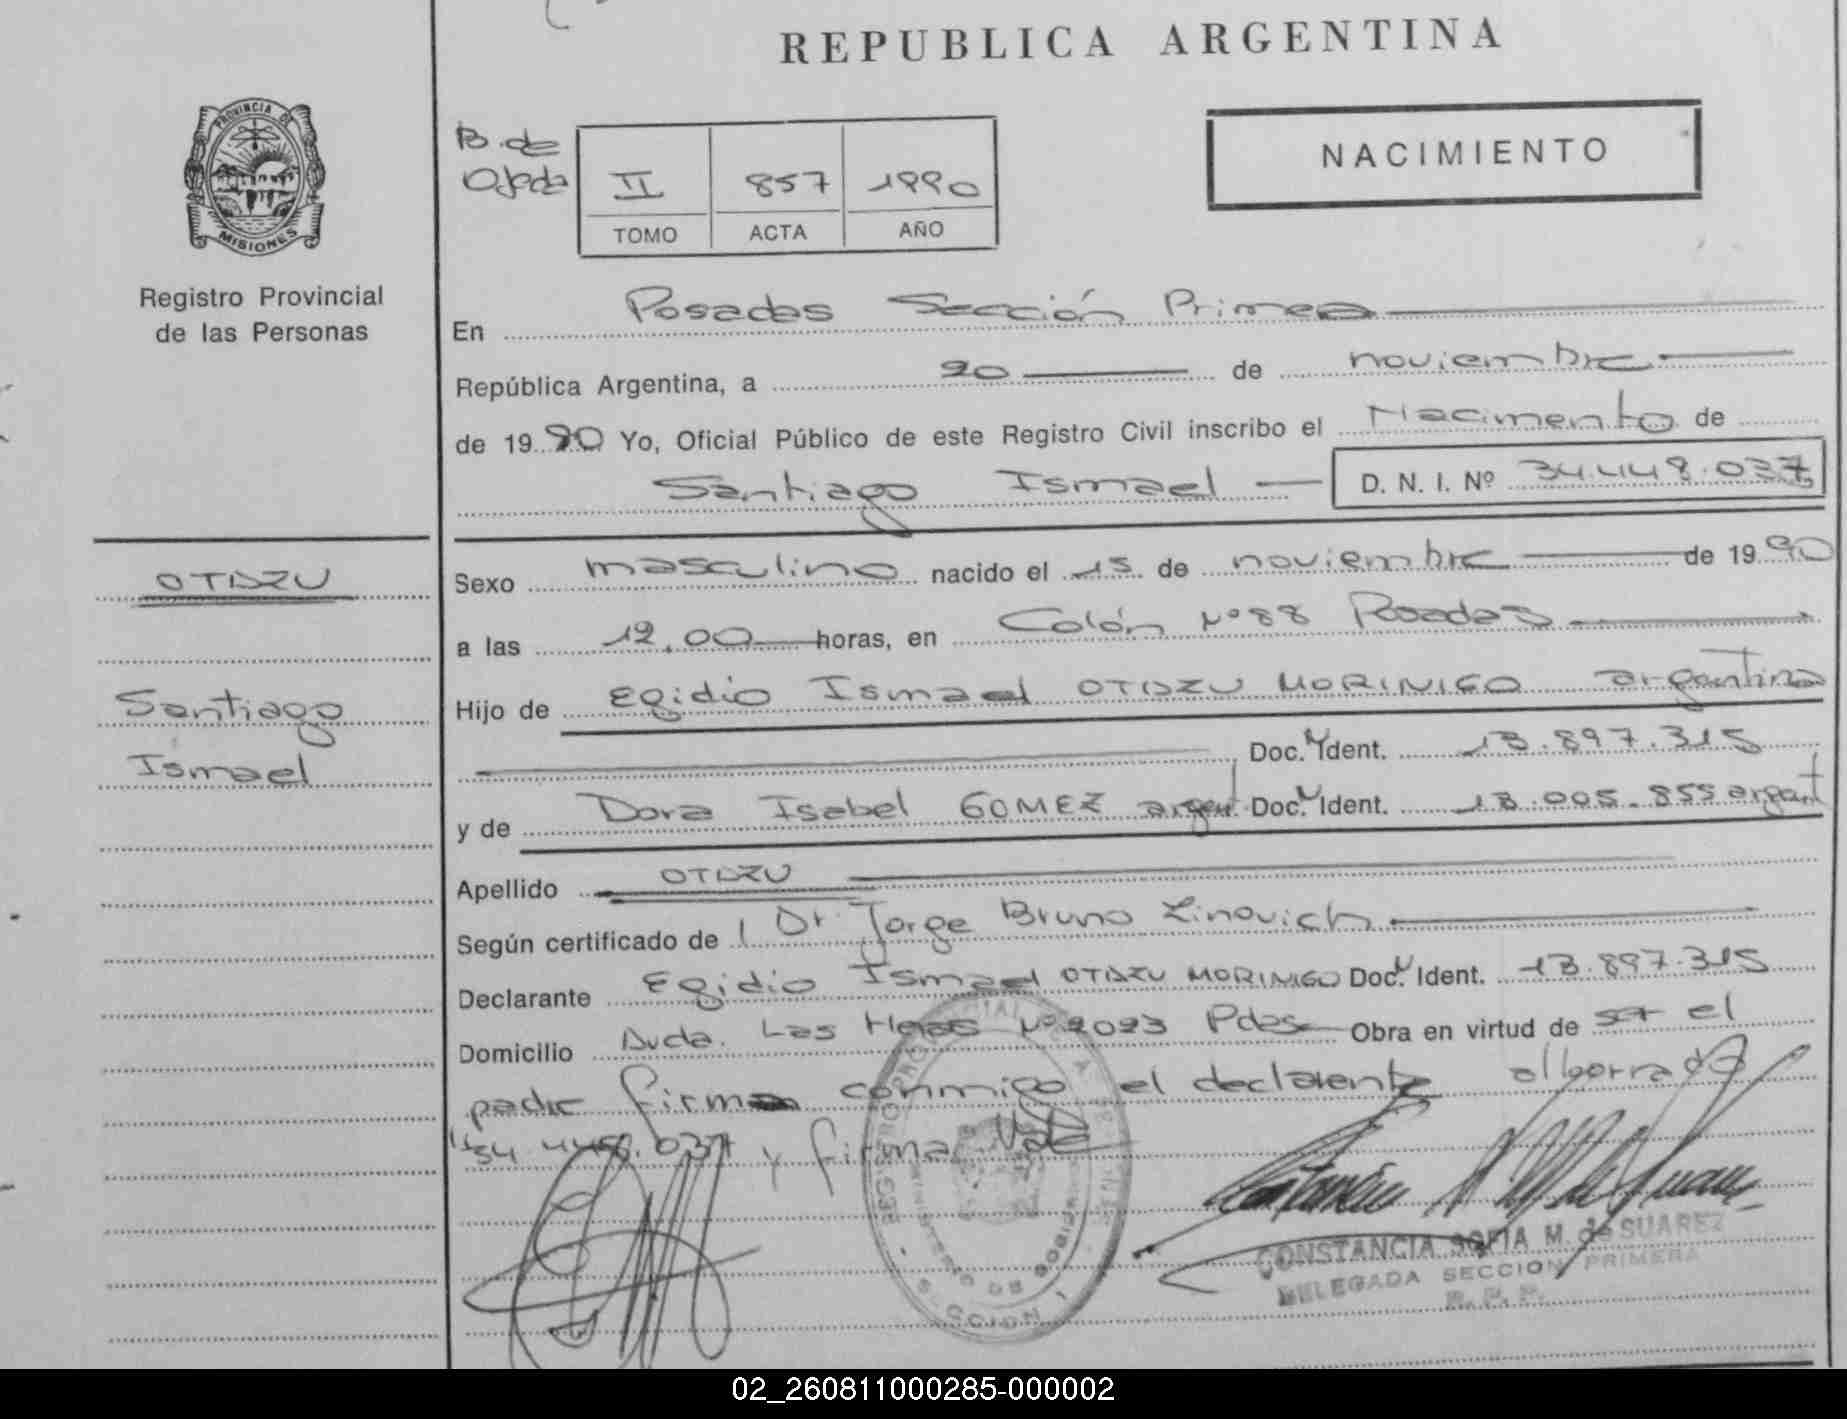 REPUBLICA ARGENTINA
PROVINCIA DE
MISIONES
Registro Provincial
de las Personas
B. de
Ojeda
II 857 1990
TOMO ACTA AÑO
NACIMIENTO
En Posadas Sección Primera
República Argentina, a 20 de noviembre
de 1990 Yo, Oficial Público de este Registro Civil inscribo el Nacimento de
Santiago Ismael D. N. I. Nº 34.448.037
OTAZU
Santiago
Ismael
Sexo masculino nacido el 15 de noviembre de 1990
a las 12,00 horas, en Colón Nº 88 Posadas
Hijo de Egidio Ismael OTAZU MORINIGO argentina
Doc. Ident. 13.897.315
y de Dora Isabel GOMEZ argent Doc. Ident. 13.005.855 argent
Apellido OTAZU
Según certificado de Dr. Jorge Bruno Zinovich
Declarante Egidio Ismael OTAZU MORINIGO Doc. Ident. 13.897.315
Domicilio Avda. Las Heras Nº 2023 Pdas Obra en virtud de ser el
padre firma conmigo el declarante al borrado
"34.448.037 y firma Vale
CONSTANCIA SOFIA M. de SUAREZ
DELEGADA SECCION PRIMERA
R. P. P.
02_260811000285-000002